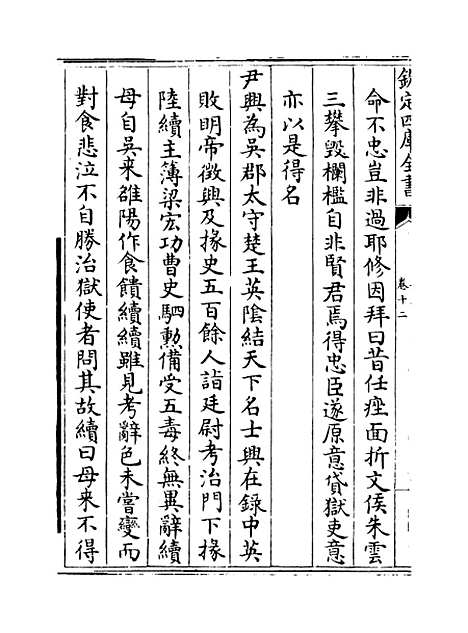 欽定四庫全書
卷十二
命不忠豈非過耶修因拜曰昔任痤面折文侯朱雲
三攀毀欄檻自非賢君焉得忠臣遂原意貸獄吏意
亦以是得名
尹興為吳郡太守楚王英陰結天下名士興在錄中英
敗明帝徵興及掾史五百餘人詣廷尉考治門下掾
陸續主簿梁宏功曹史駟勲備受五毒終無異辭續
母自吳来雒陽作食饋續續雖見考辭色未嘗變而
對食悲泣不自勝治獄使者問其故續曰母来不得